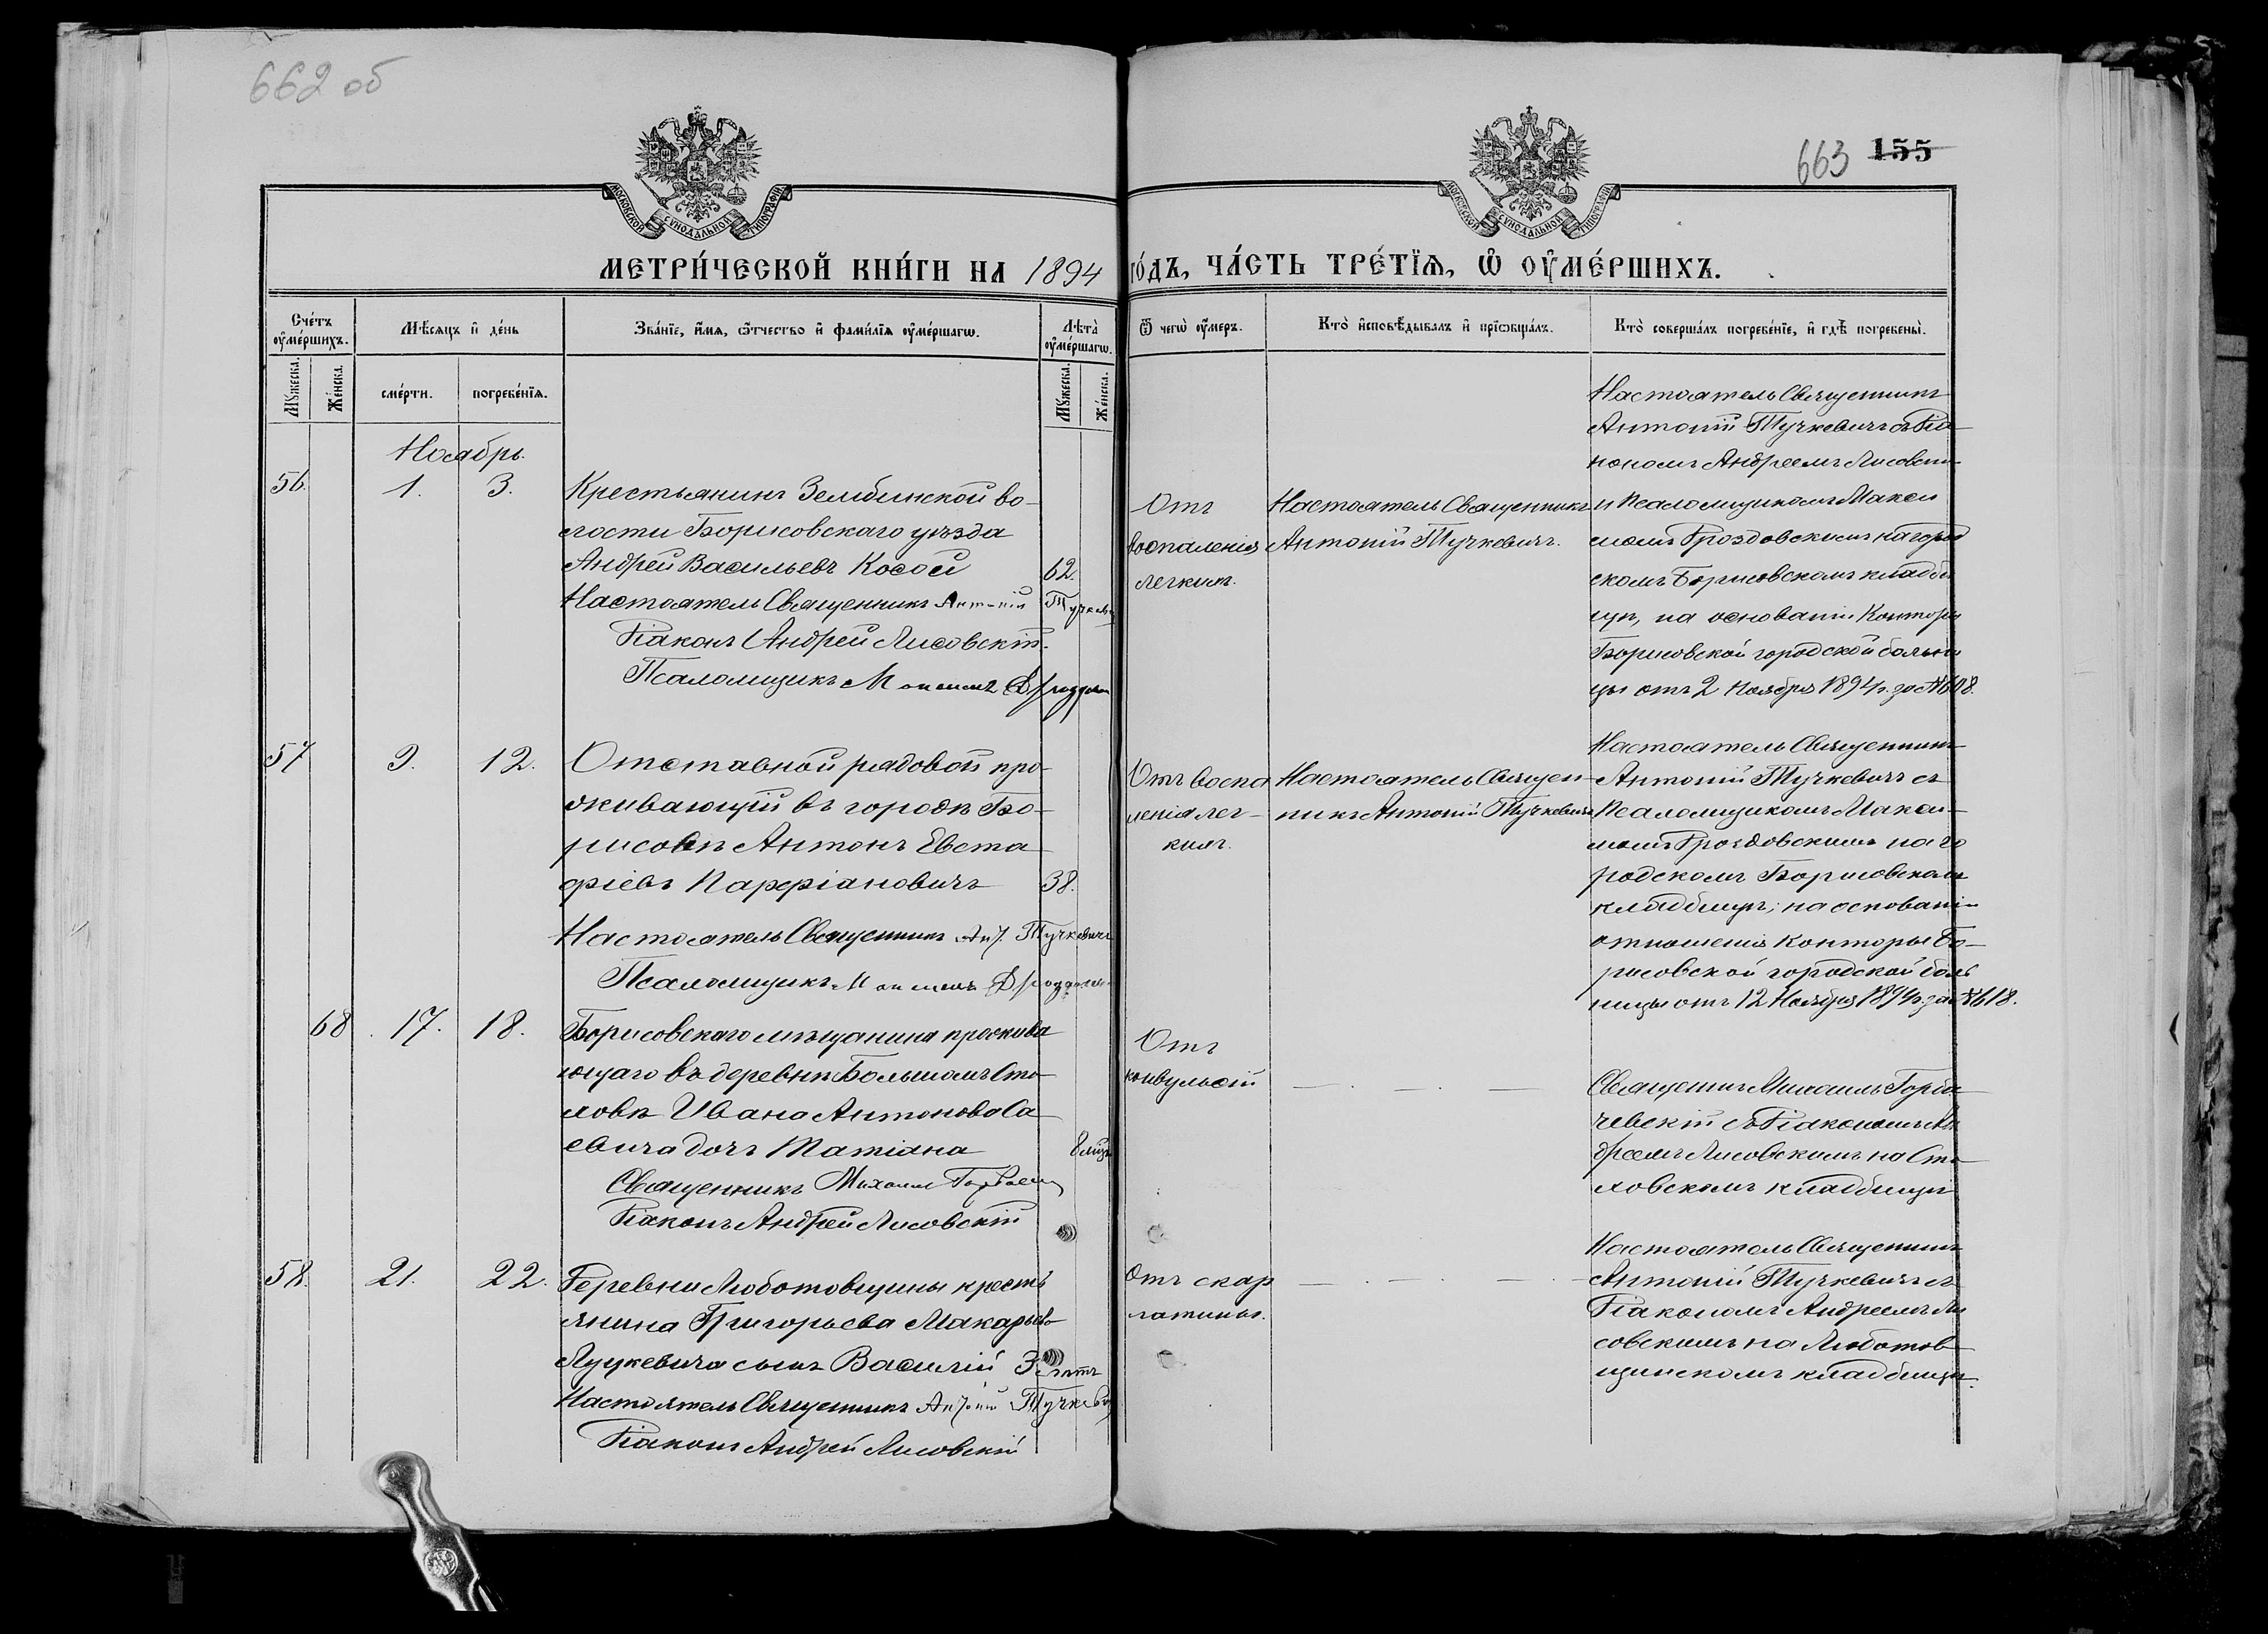 662 об
663 155
МОСКОВСКОЙ СѴНОДАЛЬНОЙ ТИПОГРАФІИ
МОСКОВСКОЙ СѴНОДАЛЬНОЙ ТИПОГРАФІИ
МЕТРИ́ЧЕСКОЙ КНИ́ГИ НА 1894 ГО́ДЪ, ЧА́СТЬ ТРЕ́ТЇѦ, Ѿ ОУ҆МЕ́РШИХЪ.
Сче́тъ оу҆ме́ршихъ.
Мꙋжеска.
Же́нска.
Мѣ́сяцъ и҆ де́нь
сме́рти.
погребе́нїѧ.
Зва́нїе, и҆́мѧ, ѻ҆́тчество и҆ фами́лїѧ оу҆ме́ршагѡ.
Лѣ̀та оу҆ме́ршагѡ.
Мꙋжеска.
Же́нска.
Ѿ чегѡ̀ оу҆́меръ.
Кто̀ и҆сповѣ́дывалъ и҆ прїѡбща́лъ.
Кто̀ соверша́лъ погребе́нїе, и҆ гдѣ̀ погребены̀.
Ноябрь.
56.
1.
3.
Крестьянинъ Зембинской во-
лости Борисовскаго уѣзда
Андрей Васильевъ Косой
62.
Настоятель Священникъ Антоній Тучкевичъ
Діаконъ Андрей Лисовскій.
Псаломщикъ Максимъ
Отъ
воспаленія
легкихъ.
Настоятель Священникъ
Антоній Тучкевичъ.
Настоятель Священникъ
Антоній Тучкевичъ съ Діа-
кономъ Андреемъ Лисовски-
и Псаломщикомъ Макси
момъ Гроздовскимъ на город
скомъ Борисовскомъ кладби
щѣ, на основаніи Конторы
Борисовской городской больни
цы отъ 2 Ноября 1894 г. за № 608.
57
9.
12.
Отставной рядовой про-
живающій въ городѣ Бо-
рисовѣ Антонъ Евста
фіевъ Парфіановичъ
38.
Настоятель Священникъ Ант. Тучкевичъ
Псаломщикъ Максимъ
Отъ воспа
ленія лег-
кихъ.
Настоятель Священ-
никъ Антоній Тучкевичъ
Настоятель Священникъ
Антоній Тучкевичъ съ
Псаломщикомъ Макси-
момъ Гроздовскимъ на го
родскомъ Борисовскомъ
кладбищѣ; на основаніи
отношенія Конторы Бо-
рисовской городской боль
ницы отъ 12 Ноября 1894 г. за № 618.
68
17.
18.
Борисовскаго мѣщанина прожива
ющаго въ деревнѣ Большомъ Сто-
ховѣ Ивана Антонова Са
евича дочь Татіана
8 мцъ
Священникъ Михаилъ
Діаконъ Андрей Лисовскій
Отъ
конвульсій
Священникъ Михаилъ Горба
чевскій съ Діакономъ Ан
дреемъ Лисовскимъ на Сто-
ховскомъ кладбищѣ
58.
21.
22.
Деревни Люботовщины кресть
янина Григорьева Макарьева
Луцкевича сынъ Василій
3 лѣтъ
Настоятель Священникъ Антоній Тучкевичъ
Діаконъ Андрей Лисовскій
Отъ скар
латины.
Настоятель Священникъ
Антоній Тучкевичъ съ
Діакономъ Андреемъ Ли
совскимъ на Люботов
щинскомъ кладбищѣ.